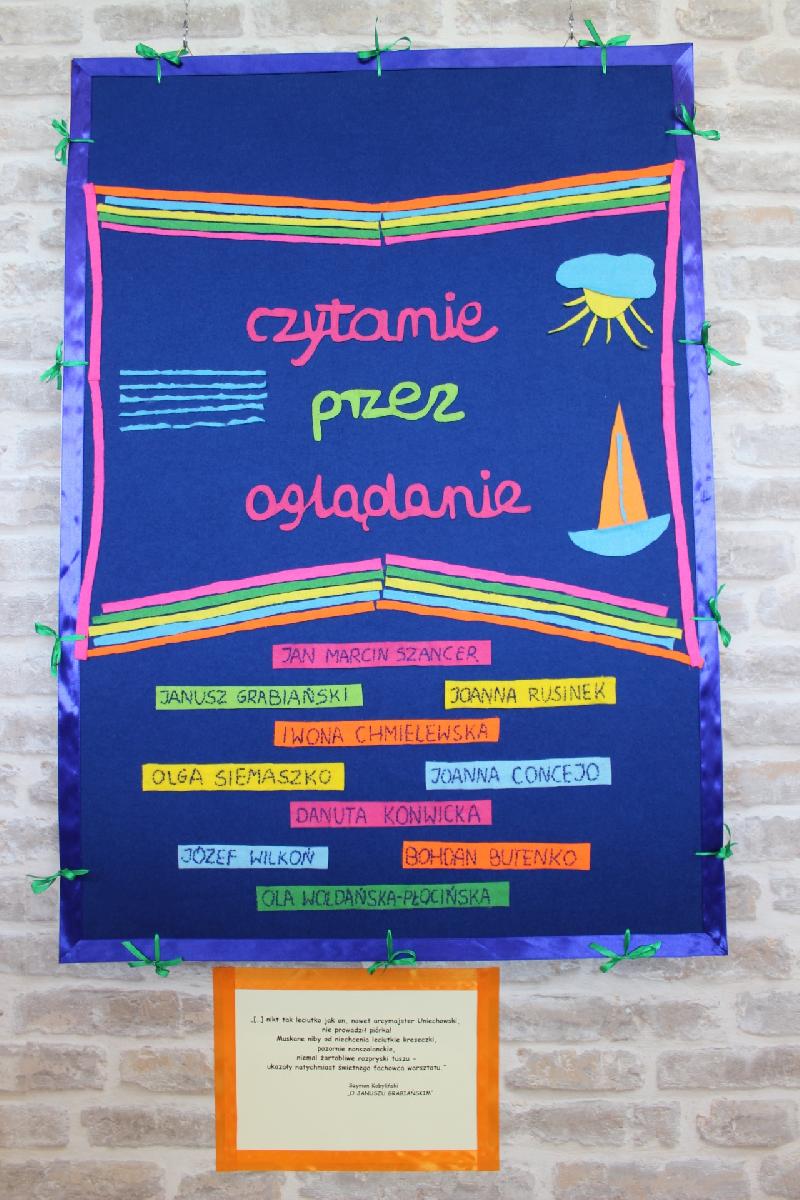 czytanie
przez
oglądanie
JAN MARCIN SZANCER
JANUSZ GRABIAŃSKI
JOANNA RUSINEK
IWONA CHMIELEWSKA
OLGA SIEMASZKO
JOANNA CONCEJO
DANUTA KONWICKA
JÓZEF WILKOŃ
BOHDAN BUTENKO
OLA WOLDAŃSKA-PŁOCIŃSKA
„[...] nikt tak leciutko jak on, nawet arcymajster Uniechowski,
nie prowadził piórka!
Muskane niby od niechcenia leciutkie kreseczki,
pozornie nonszalanckie,
niemal żartobliwe rozpryski tuszu –
ukazały natychmiast świetnego fachowca warsztatu.”
Szymon Kobyliński
„O JANUSZU GRABIAŃSKIM”